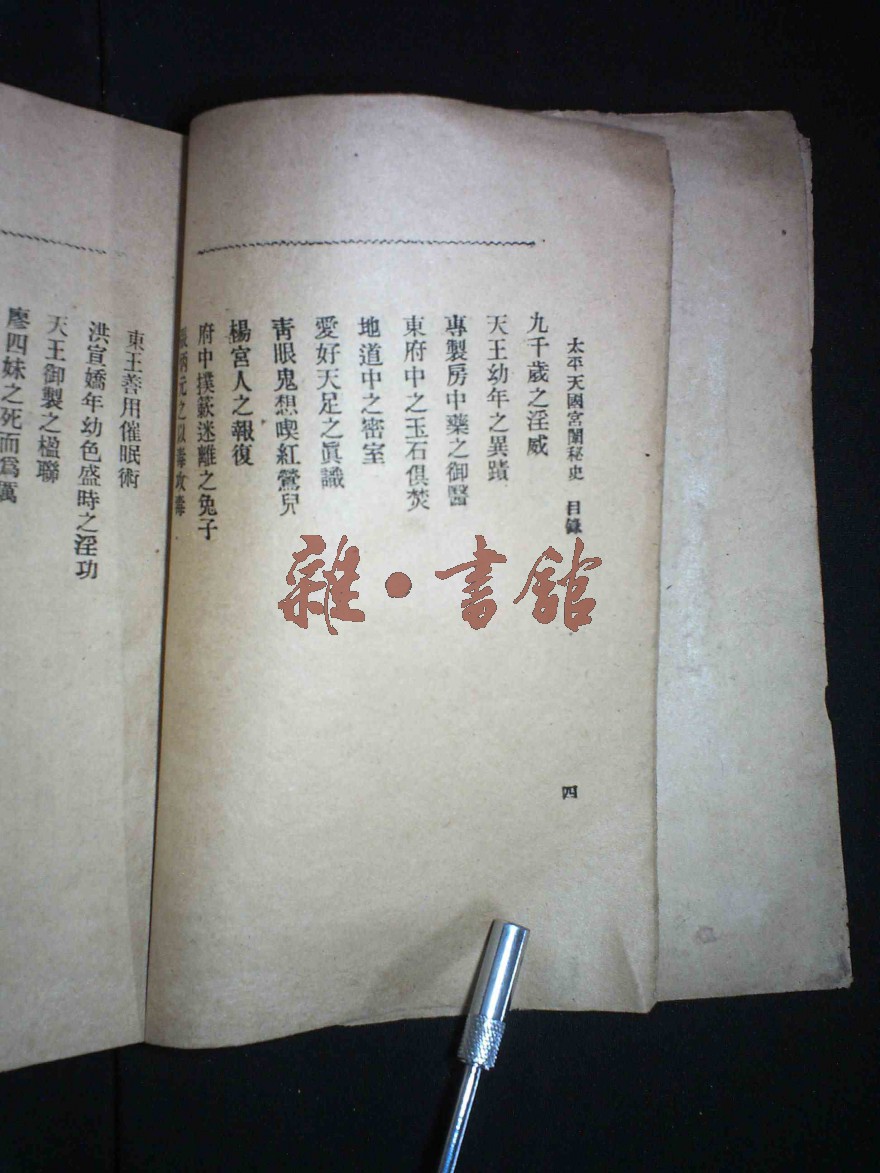 太平天國宮闈秘史 目錄
九千歲之淫威
天王幼年之異蹟
專製房中藥之御醫
東府中之玉石俱焚
地道中之密室
愛好天足之眞識
靑眼鬼想喫紅鶯兒
楊宮人之報復
府中撲簌迷離之兔子
丙元之以毒攻毒
四
東王善用催眠術
洪宣嬌年幼色盛時之淫功
天王御製之楹聯
廖四妹之死而爲厲
雜·書館